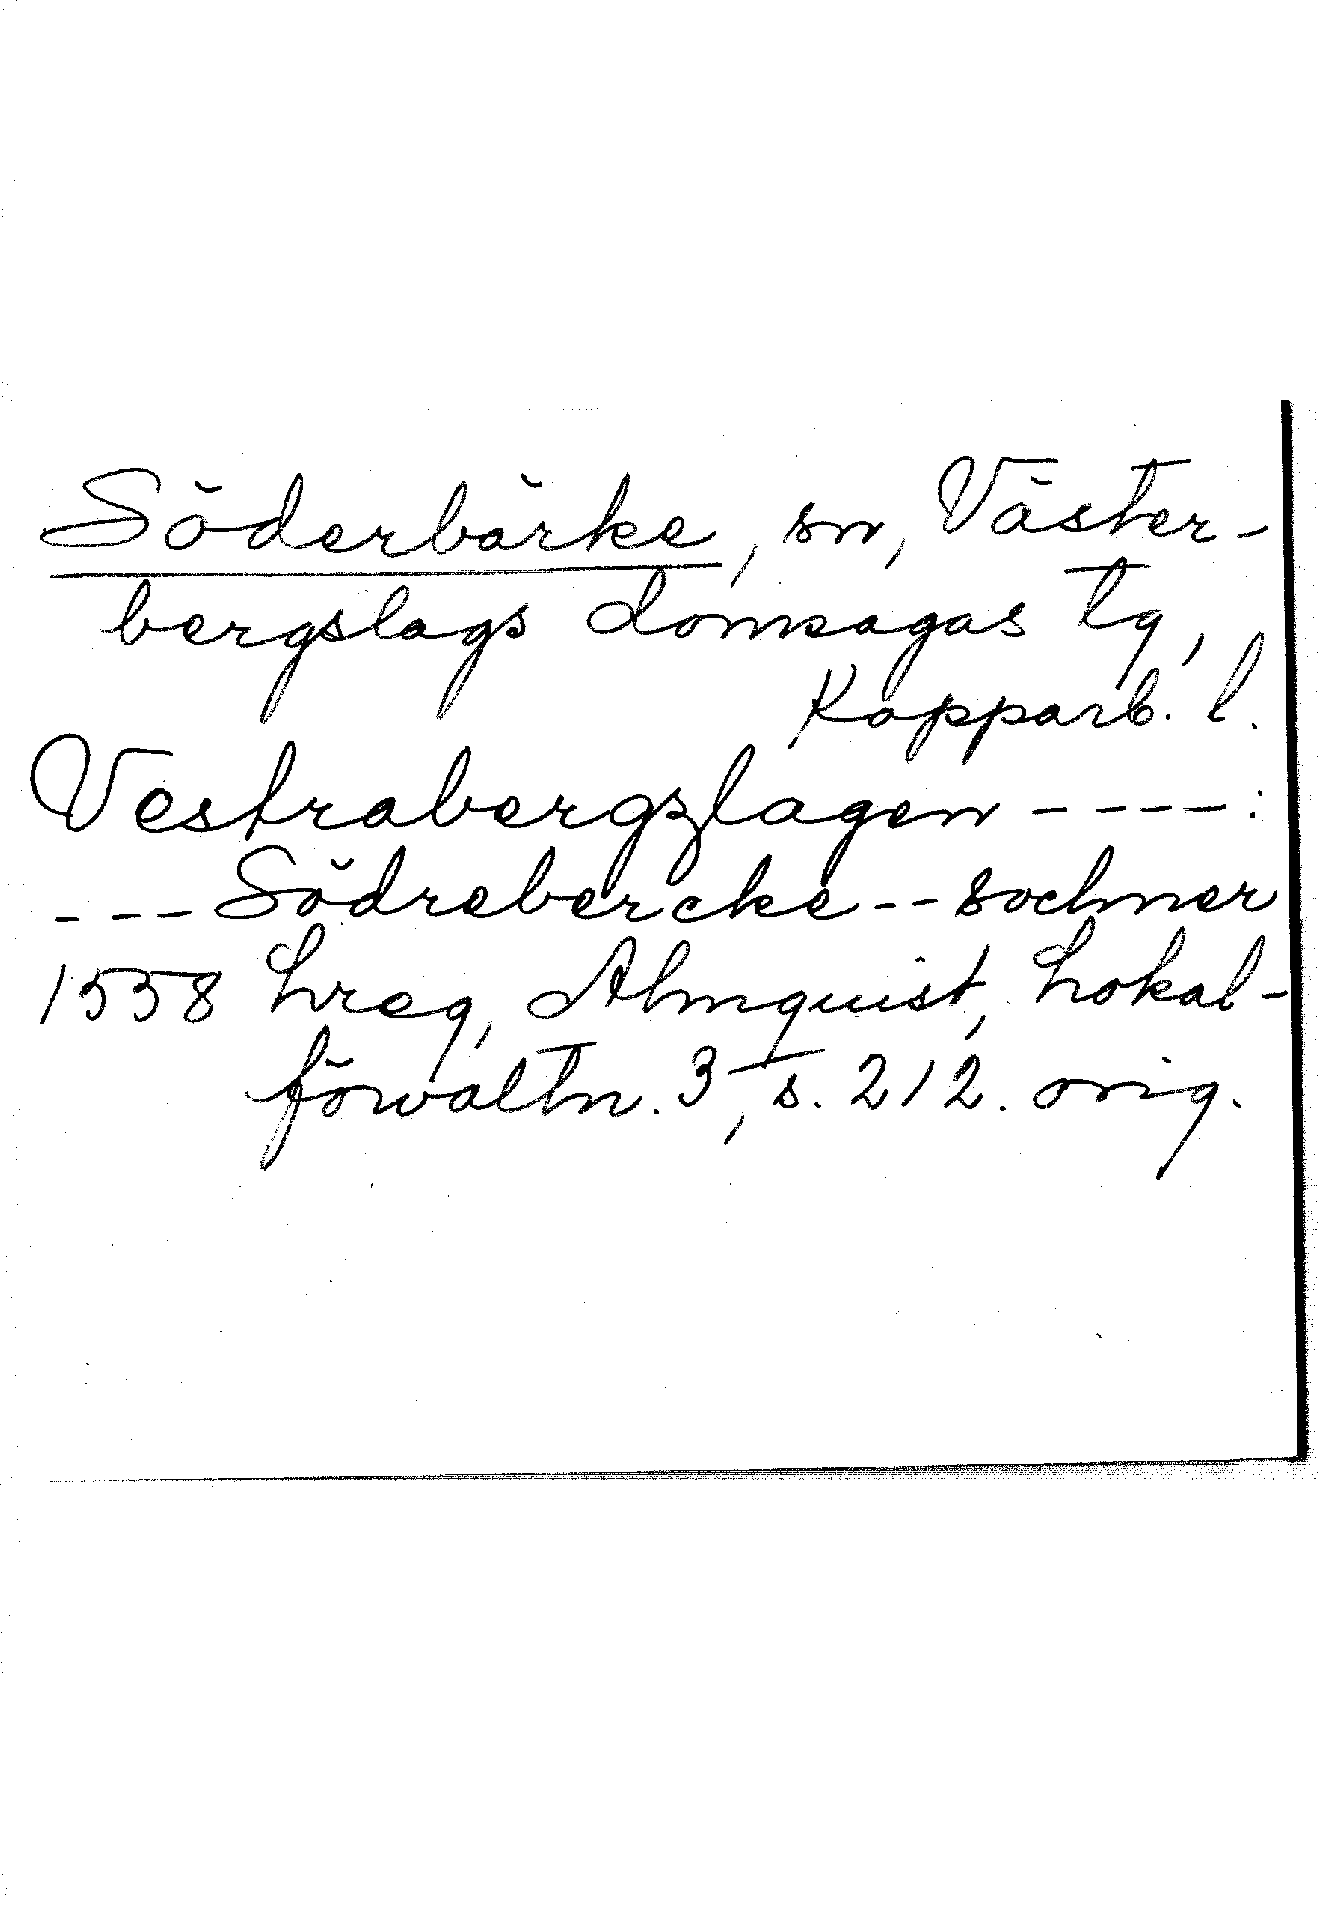 Söderbärke, sn, Väster-
bergslags domsagas tg,
Kopparb. l.
Vestrabergzlagen - - - - :
- - - Södrebercke - - sochner
1558 Lreg, Almquist, Lokal-
förvaltn. 3, s. 212. orig.